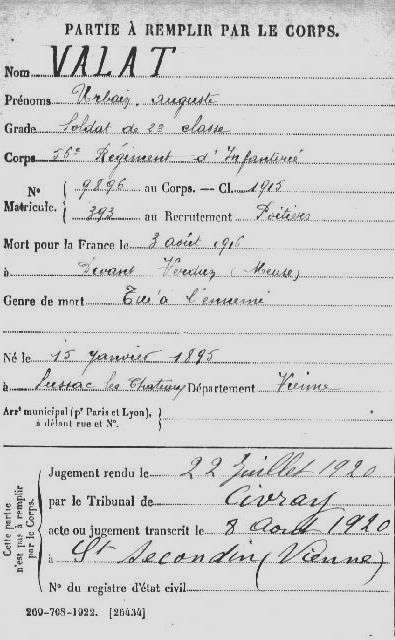 PARTIE À REMPLIR PAR LE CORPS.
Nom VALAT
Prénoms Urbain, auguste
Grade Soldat de 2e classe
Corps 56e Régiment d'Infanterie
N° Matricule. { 9896 au Corps. — Cl. 1915
393 au Recrutement Poitiers
Mort pour la France le 3 août 1916
à Devant Verdun (Meuse)
Genre de mort Tué à l'ennemi
Né le 15 janvier 1895
à Lussac les Chateaux Département Vienne
Arrt municipal (pr Paris et Lyon), à défaut rue et N°.
Cette partie n'est pas à remplir par le Corps.
Jugement rendu le 22 Juillet 1920
par le Tribunal de Civray
acte ou jugement transcrit le 8 Aout 1920
à St Secondin (Vienne)
N° du registre d'état civil
269-708-1922. [26434]